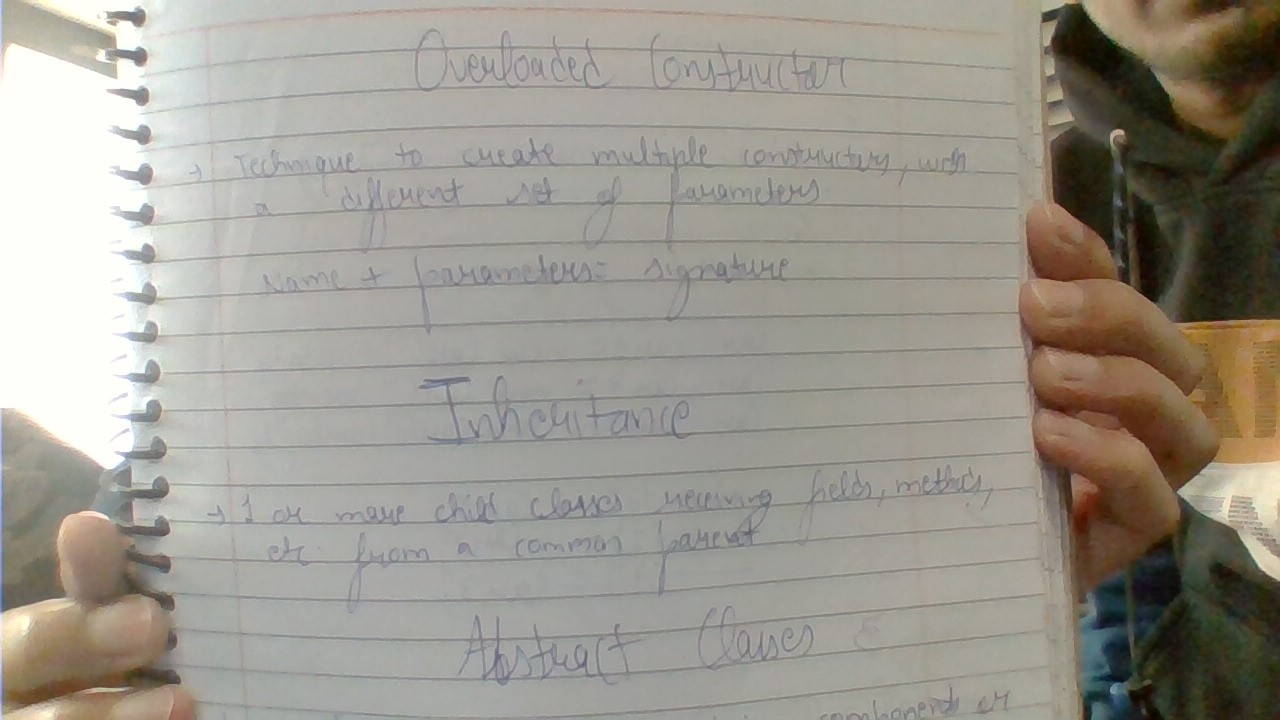 Overloaded Constructor
→ Technique to create multiple constructors, with
a different set of parameters
Name + parameters = signature
Inheritance
→ 1 or more child classes receiving fields, methods,
etc from a common parent
Abstract Classes
components or